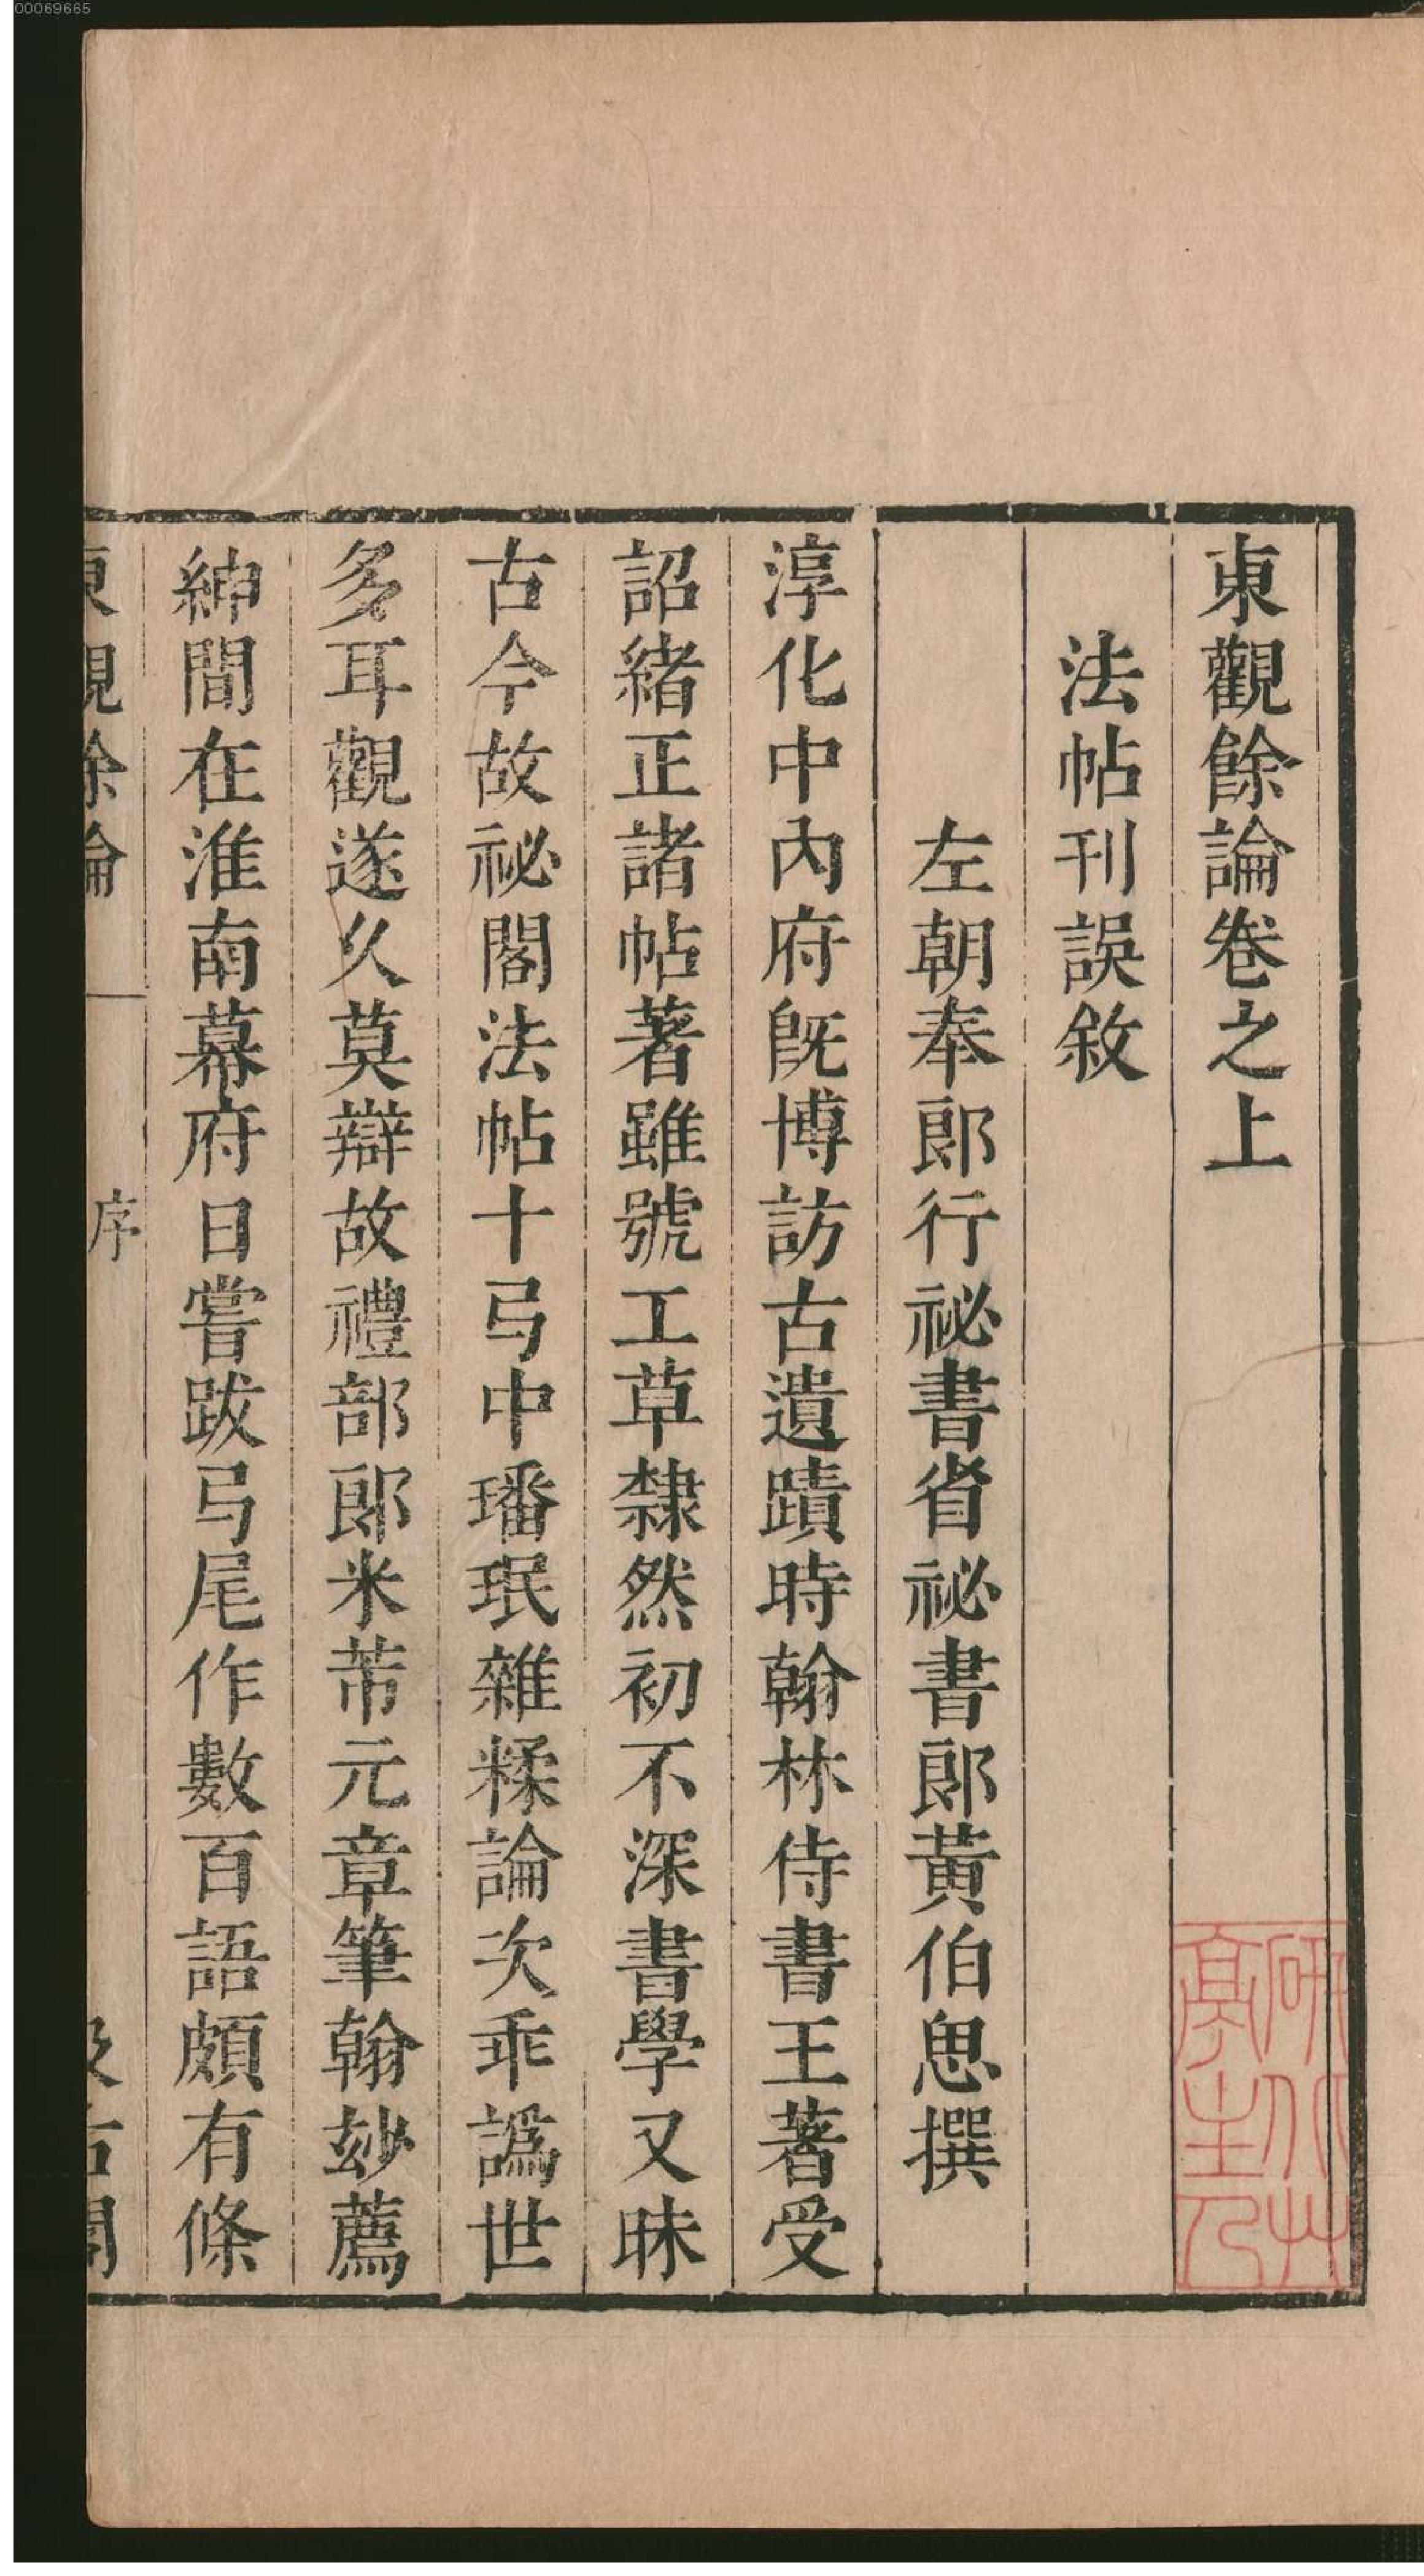 00069665
東觀餘論卷之上
法帖刊誤敘
左朝奉郎行祕書省祕書郎黃伯思撰
淳化中內府旣博訪古遺蹟時翰林侍書王著受
詔緒正諸帖著雖號工草隸然初不深書學又昧
古今故祕閣法帖十弓中璠珉雜糅論次乖譌世
多耳觀遂久莫辯故禮部郎米芾元章筆翰妙薦
紳間在淮南幕府日嘗跋弓尾作數百語頗有條
東觀餘論
一
序
汲古閣